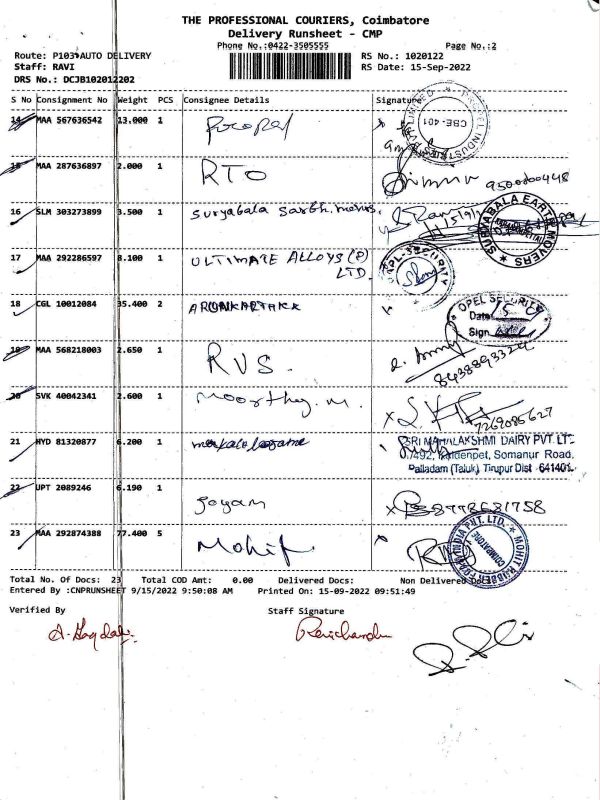 THE PROFESSIONAL COURIERS, Coimbatore
Delivery Runsheet - CMP
Phone No.:0422-3505555
Page No.:2
Route: P103-AUTO DELIVERY
RS No.: 1020122
Staff: RAVI
RS Date: 15-Sep-2022
DRS No.: DCJB102012202
S No Consignment No Weight PCS Consignee Details Signature
14 MAA 567636542 13.000 1
CBE-401
MAA 287636897 2.000 1 RTO
9500000448
16 SLM 303273899 3.500 1 Suryabala
SURYABALA EARTH MOVERS
17 MAA 292286597 8.100 1 ULTIMATE ALLOYS (P) LTD.
18 CGL 10012084 35.400 2
OPEL SECURITY
Date 15
Sign
19 MAA 568218003 2.650 1 RVS.
8438893324
20 SVK 40042341 2.600 1 Moorthy. M.
7269085627
21 HYD 81320877 6.200 1
SRI MAHALAKSHMI DAIRY PVT. LTD
Somanur Road,
Palladam (Taluk) Tirupur Dist 641401.
22 UPT 2089246 6.190 1 Jayam
8778631758
23 MAA 292874388 77.400 5 Mohit
MOHIT RUBBER INDIA PVT. LTD.
COIMBATORE
Total No. Of Docs: 23 Total COD Amt: 0.00 Delivered Docs: Non Delivered Docs:
Entered By :CNPRUNSHEET 9/15/2022 9:50:08 AM Printed On: 15-09-2022 09:51:49
Verified By Staff Signature
Ravichandran